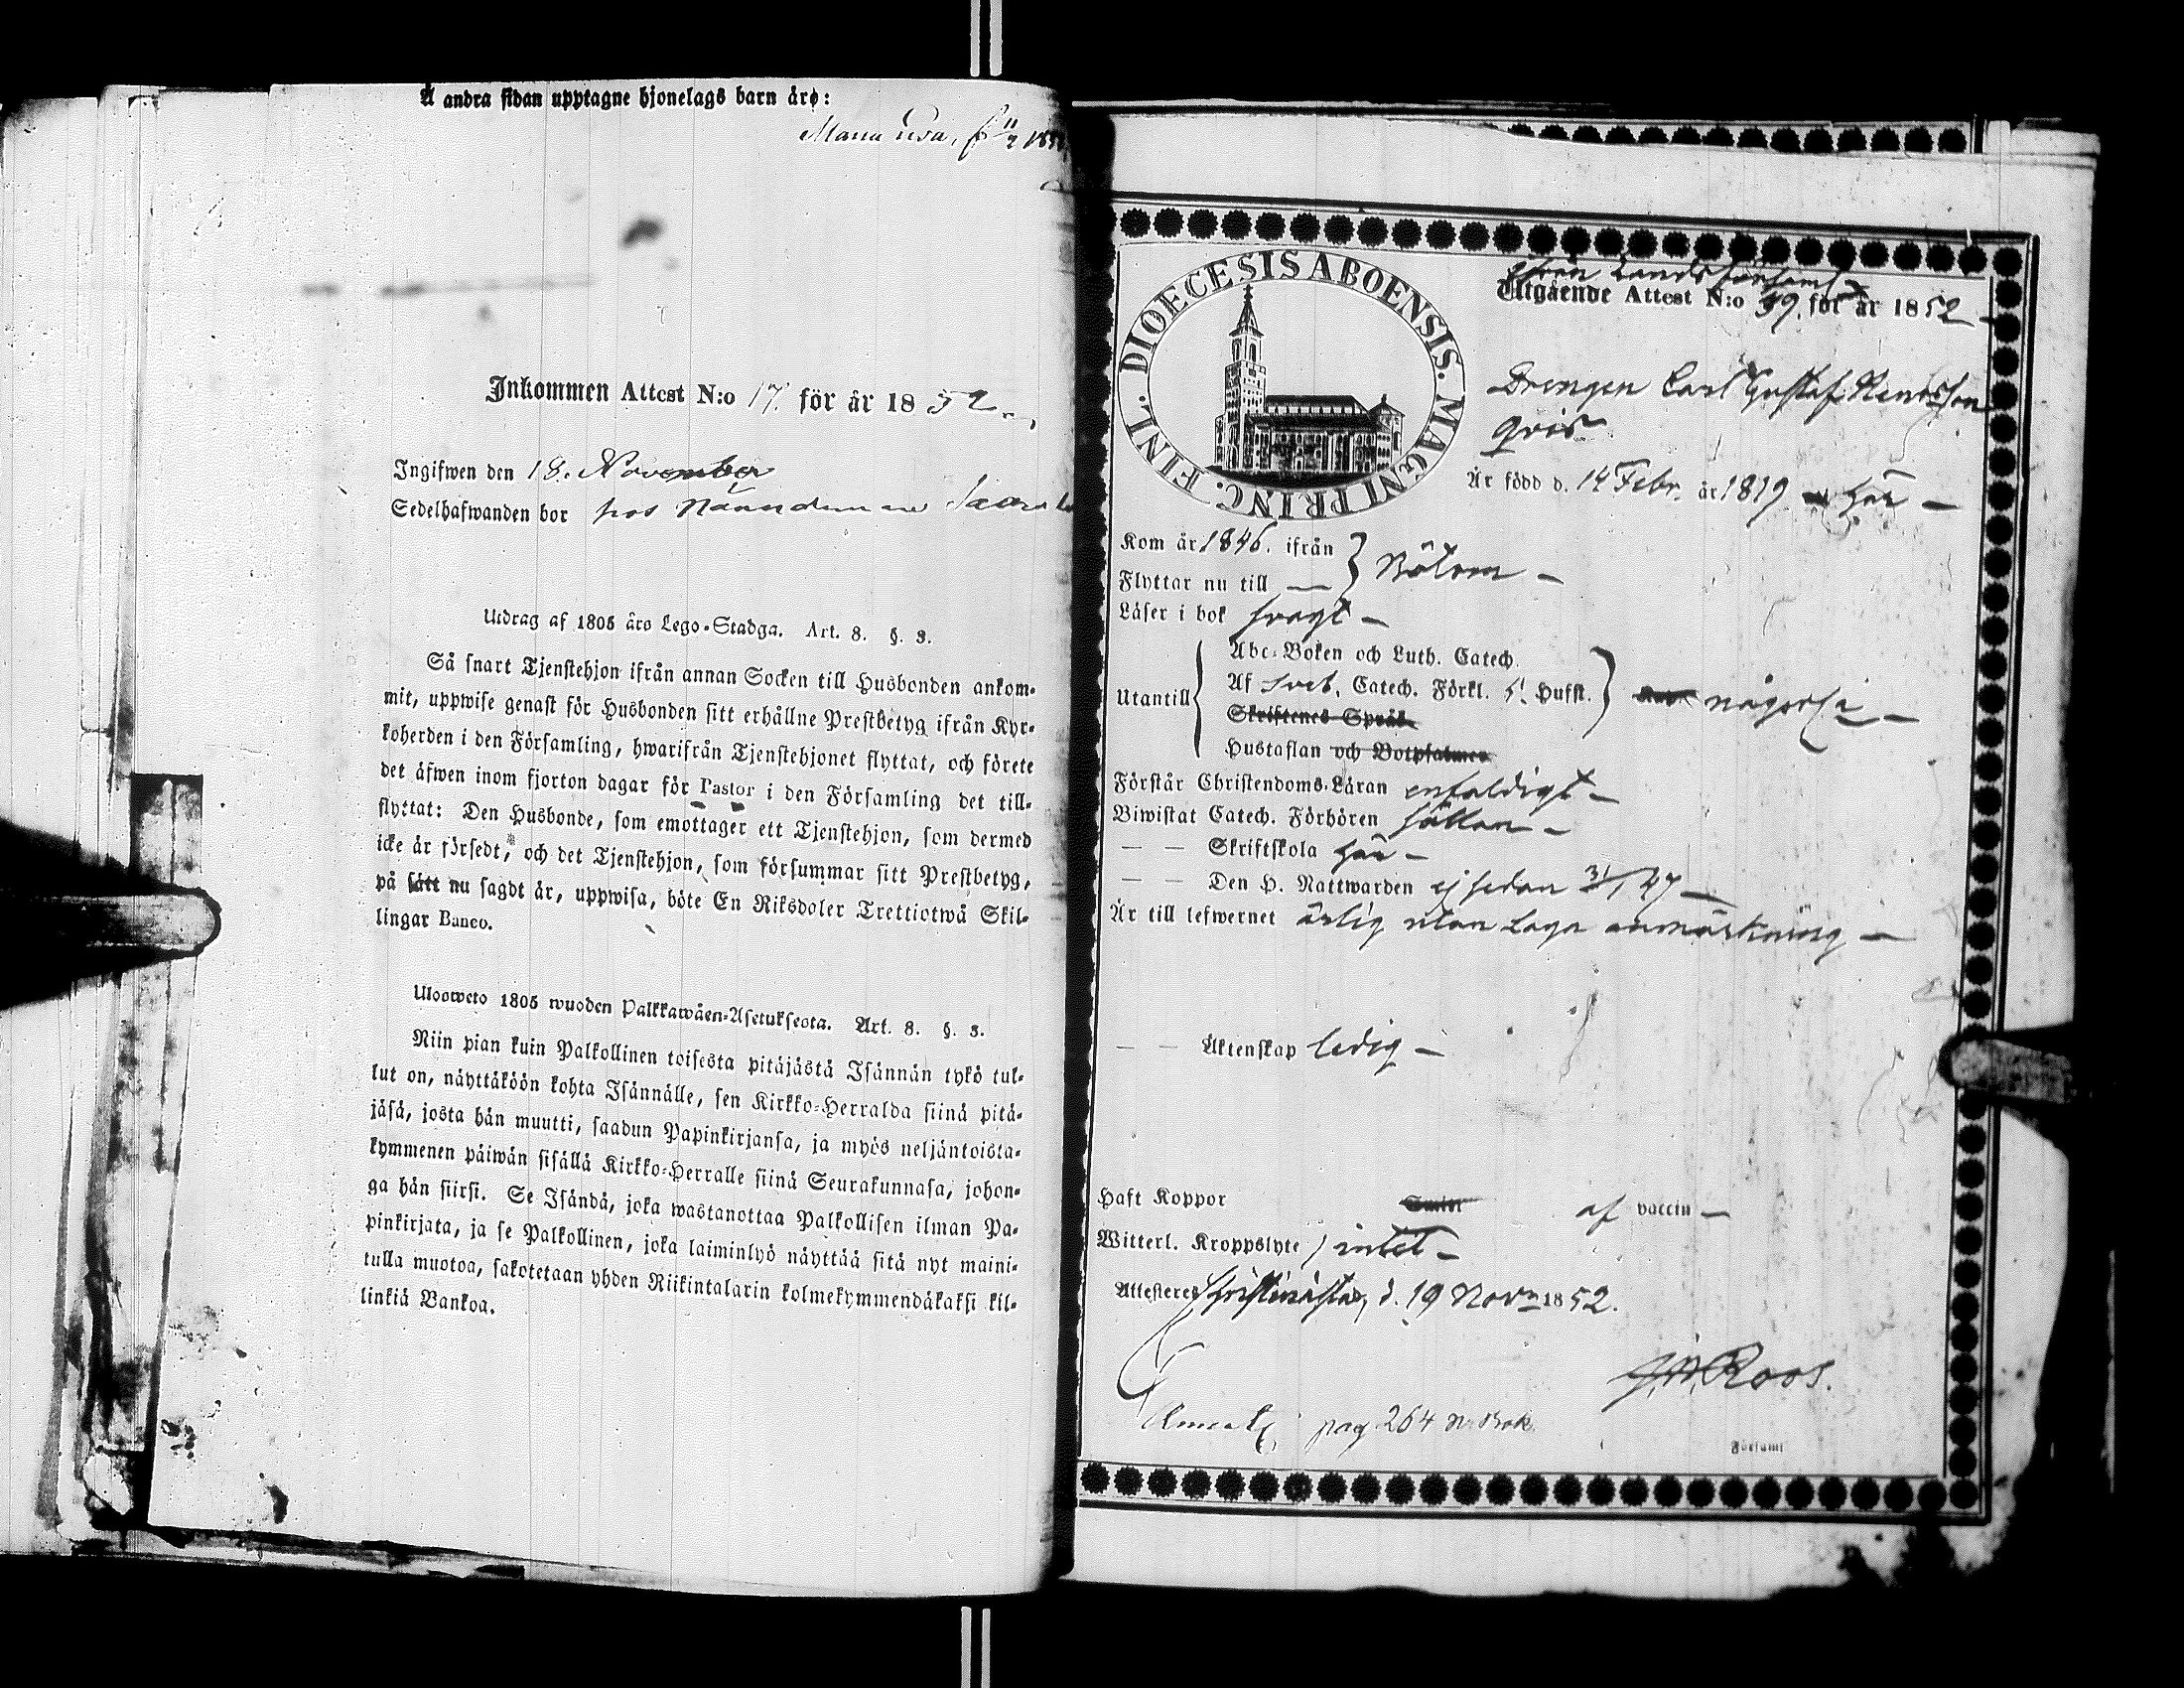 Å andra sidan upptagne hjonelags barn äro:
Maria
Inkommen Attest N:o 17. för år 1852
Ingifwen den 18. November
Sedelhafwanden bor hos Nämndemannen
Utdrag af 1805 års Lego-Stadga. Art. 8. §. 3.
Så snart Tjenstehjon ifrån annan Socken till Husbonden ankom-
mit, uppwise genast för Husbonden sitt erhållne Prestbetyg ifrån Kyr-
koherden i den Församling, hwarifrån Tjenstehjonet flyttat, och förete
det äfwen inom fjorton dagar för Pastor i den Församling det till-
flyttat: Den Husbonde, som emottager ett Tjenstehjon, som dermed
icke är försedt, och det Tjenstehjon, som försummar sitt Prestbetyg,
på sätt nu sagdt är, uppwisa, böte En Riksdoler Trettiotwå Skil-
lingar Banco.
Ulosweto 1805 wuoden Palkkawäen-Asetuksesta. Art. 8. §. 3.
Niin pian kuin Palkollinen toisesta pitäjästä Isännän tykö tul-
lut on, näyttäköön kohta Isännälle, sen Kirkko-Herralda siinä pitä-
jäsä, josta hän muutti, saadun Papinkirjansa, ja myös neljäntoista-
kymmenen päiwän sisällä Kirkko-Herralle siinä Seurakunnasa, johon-
ga hän siirsi. Se Isändä, joka wastanottaa Palkollisen ilman Pa-
pinkirjata, ja se Palkollinen, joka laiminlyö näyttää sitä nyt maini-
tulla muotoa, sakotetaan yhden Riikintalarin kolmekymmendäkaksi kil-
linkiä Bankoa.
DIOECESIS ABOENSIS. MAGNI PRINC. FINL.
ifrån Landsförsaml.
Utgående Attest N:o 39. för år 1852
Drengen Carl Gustaf Henrsson
Gris
Är född d. 14 Febr. år 1819 här
Kom år 1846. ifrån
Flyttar nu till Bötom
Läser i bok svagt
Abc-Boken och Luth. Catech.
Utantill Af Sveb. Catech. Förkl. 5! Hufst. någorl:a
Skriftenes Språk
Hustaflan och Botpsalmer
Förstår Christendoms-Läran enfaldigt
Biwistat Catech. Förhören sällan
Skriftskola här
Den H. Nattwarden ej sedan 31/1 47
Är till lefwernet ärlig utan Laga anmärkning
Äktenskap ledig
Haft Koppor af vaccin
Witterl. Kroppslyte intet
Attesterer Christinestad, d. 19 Nov. 1852.
Roos.
pag 264 n. Bok.
Församl